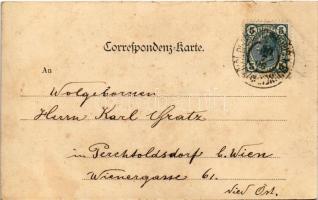 Correspondenz-Karte.
An
Wolgebornen
Herrn Karl Gratz
in Perchtoldsdorf b. Wien
Wienergasse 61.
Nied. Öst.
5 5